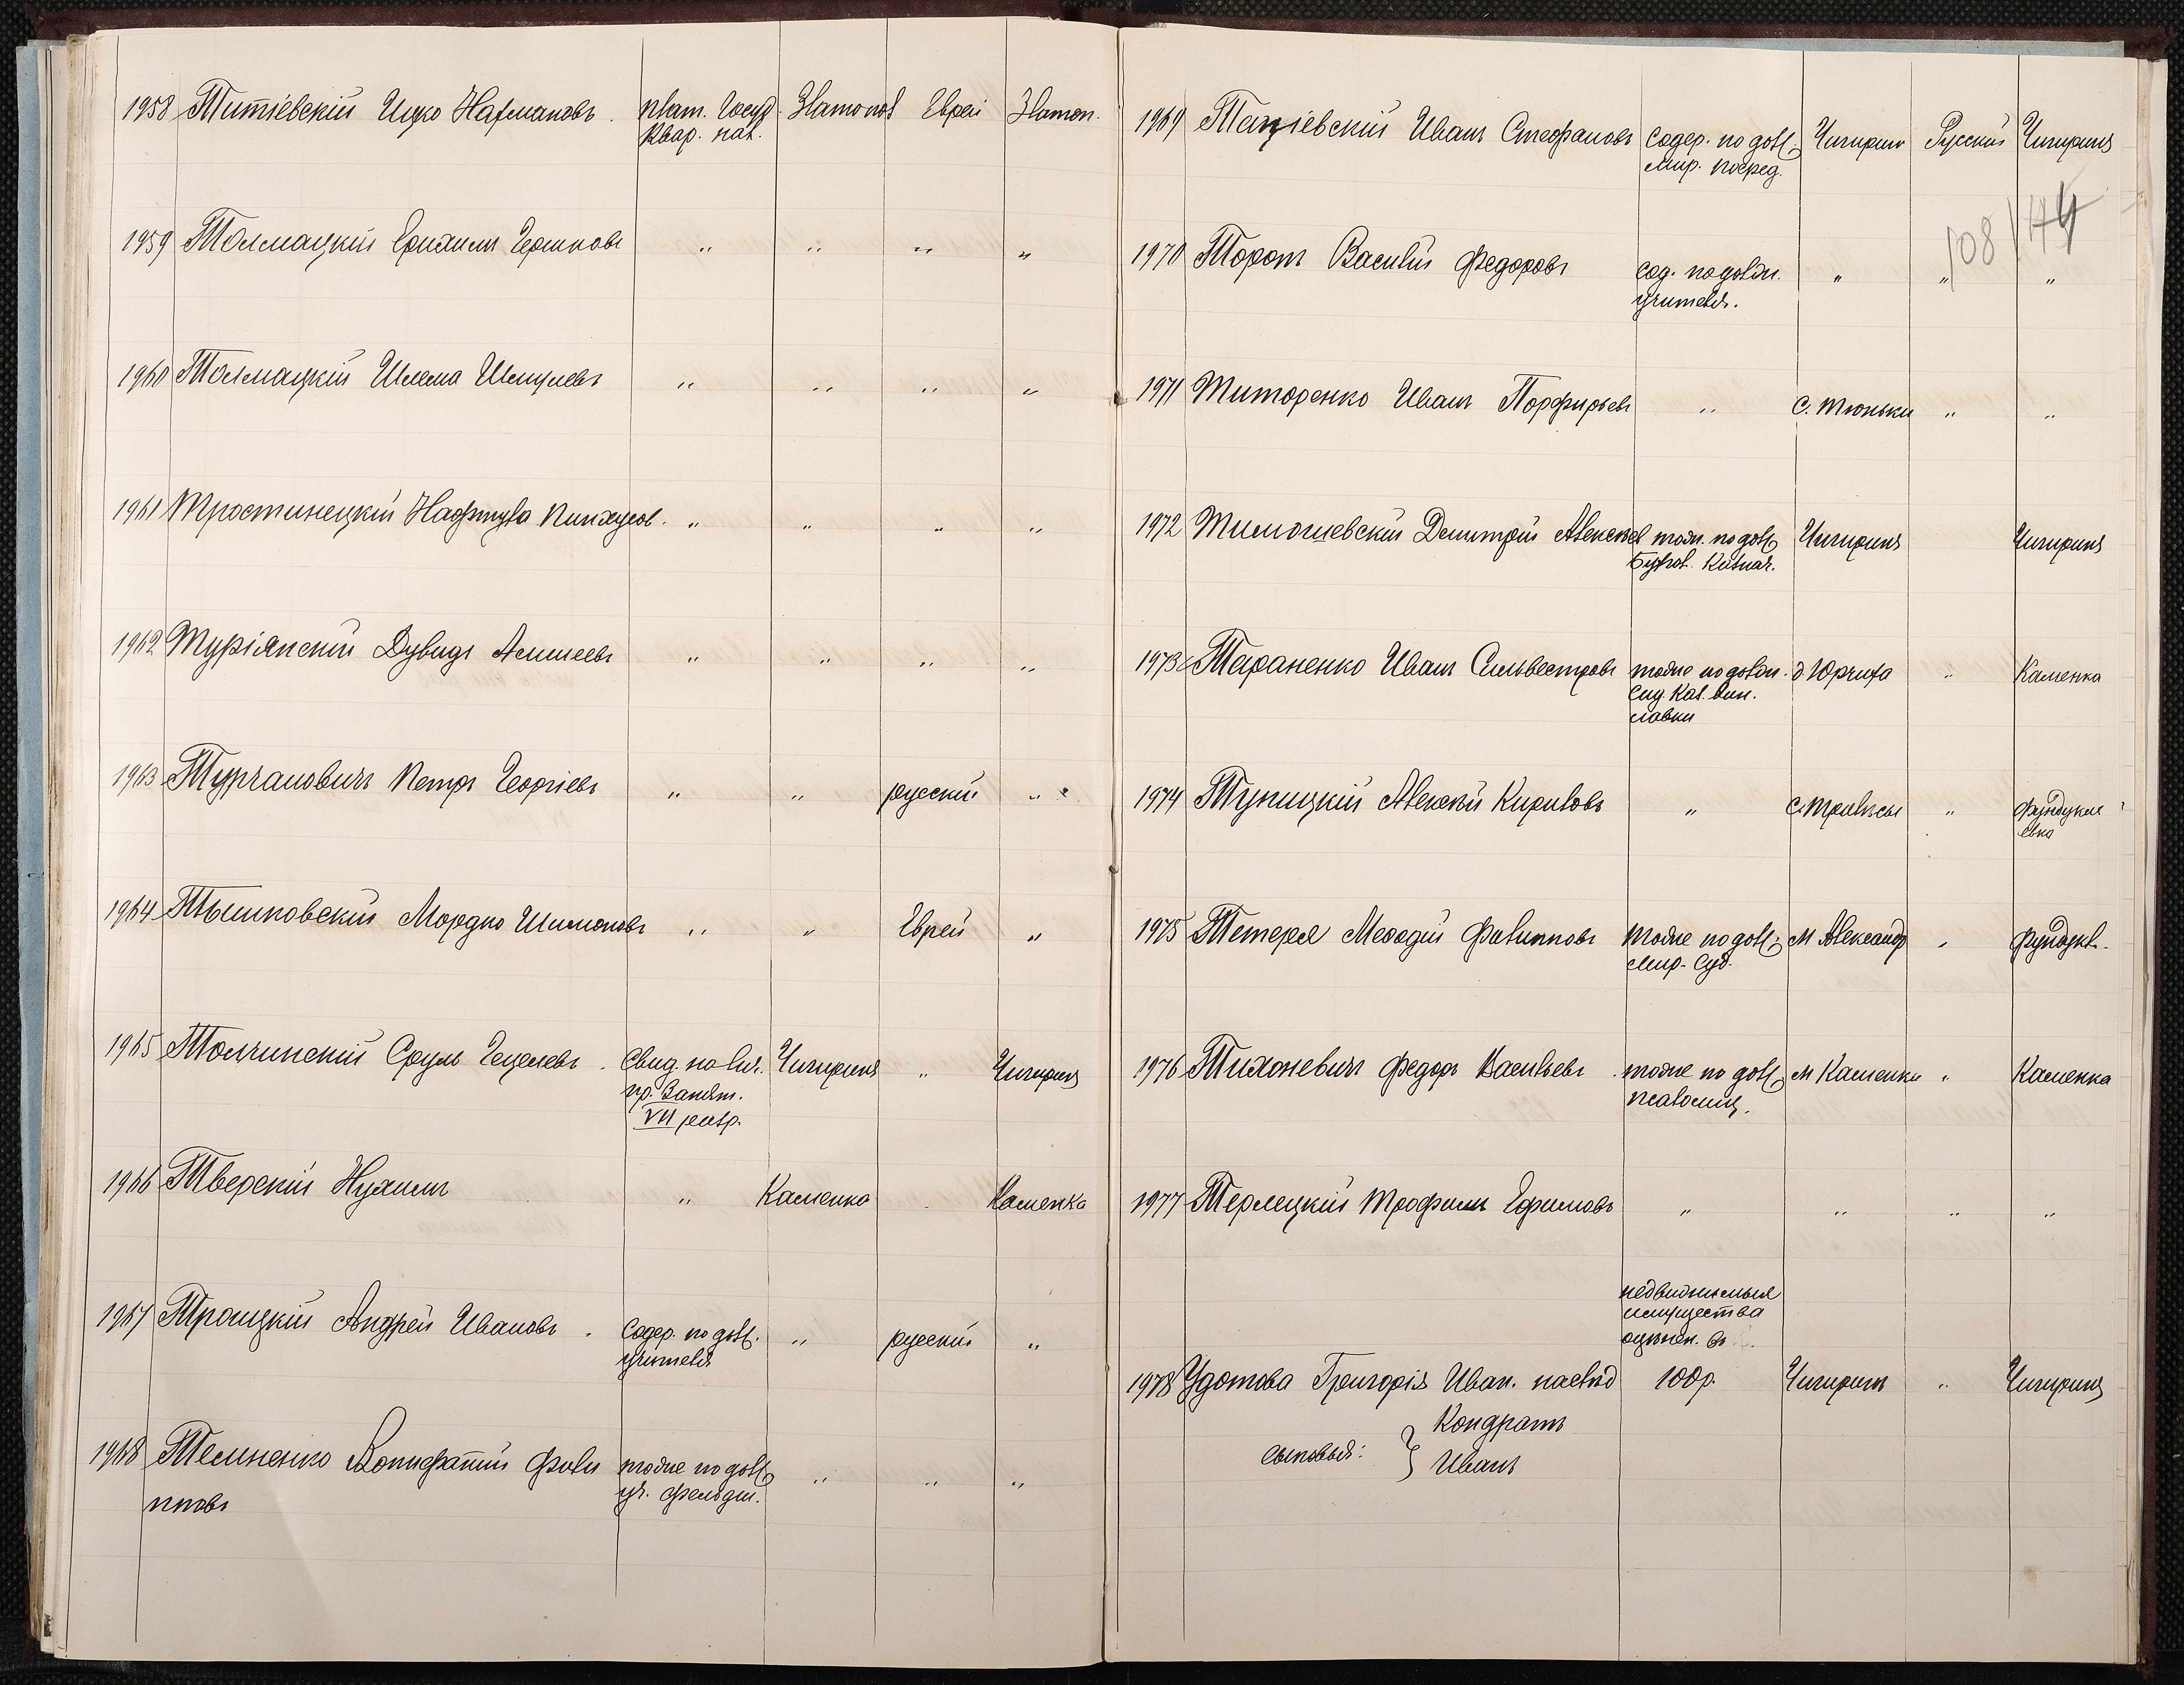 1958 Титіевскій Ицко Нахмановъ. плат. Госуд. Златопол Еврей Златоп.
квар. нал.
1959 Толмацкій Ерихимъ Гершковъ „ „ „ „
1960 Толмацкій Шлема Шмулевъ „ „ „ „
1961 Тростинецкій Нафтула Пинхусов. „ „ „ „
1962 Дувидъ „ „ „ „
1963 Турчановичъ Петръ Георгіевъ „ „ русскій „
1964 Тышковскій Мордко Шимоновъ „ „ Еврей „
1965 Толчинскій Сруль Гецелевъ. Свид. на лич. Чигиринъ „ Чигиринъ
пр. Занят.
VII разр.
1966 Тверскій Нухимъ „ Каменка Каменка
1967 Троицкій Андрей Ивановъ. Содер. по долж. „ русскій „
учителя
1968 Темненко Вонифатій Фили тоже по долж. „ „ „
пповъ уч. фельдш.
1969 Иванъ Стефановъ Содер. по долж. Чигирин Русскій Чигиринъ
мир. посред.
108 144
1970 Торопъ Василій Федоровъ Сод. по должн. „ „ „
учителя.
1971 Титоренко Иванъ Порфирьевъ „ С. Тюньки „ „
1972 Тимошевскій Димитрій Алексѣев тож. по долж. Чигиринъ Чигиринъ
1973 Тараненко Иванъ Сильвестровъ тоже по должн. д Юрчиха „ Каменка
Сид. Каз. вин.
лавки
1974 Тупицкій Алексѣй Кириловъ „ С. Трилѣсы „ Фундукле
евка
1975 Тетеря Меѳодій Филипповъ Тоже по долж. М Александр „ Фундукл.
Мир. Суд.
1976 Тихоневичъ Федоръ Васильевъ тоже по долж. М Каменки „ Каменка
псаломщ.
1977 Терлецкій Трофимъ Ефимовъ „ „ „ „
недвижимыя
имущества
оцѣнен. въ
1978 Удотова Григорія Иван. наслѣд 100р. Чигиринъ „ Чигиринъ
Кондратъ
сыновья: } Иванъ